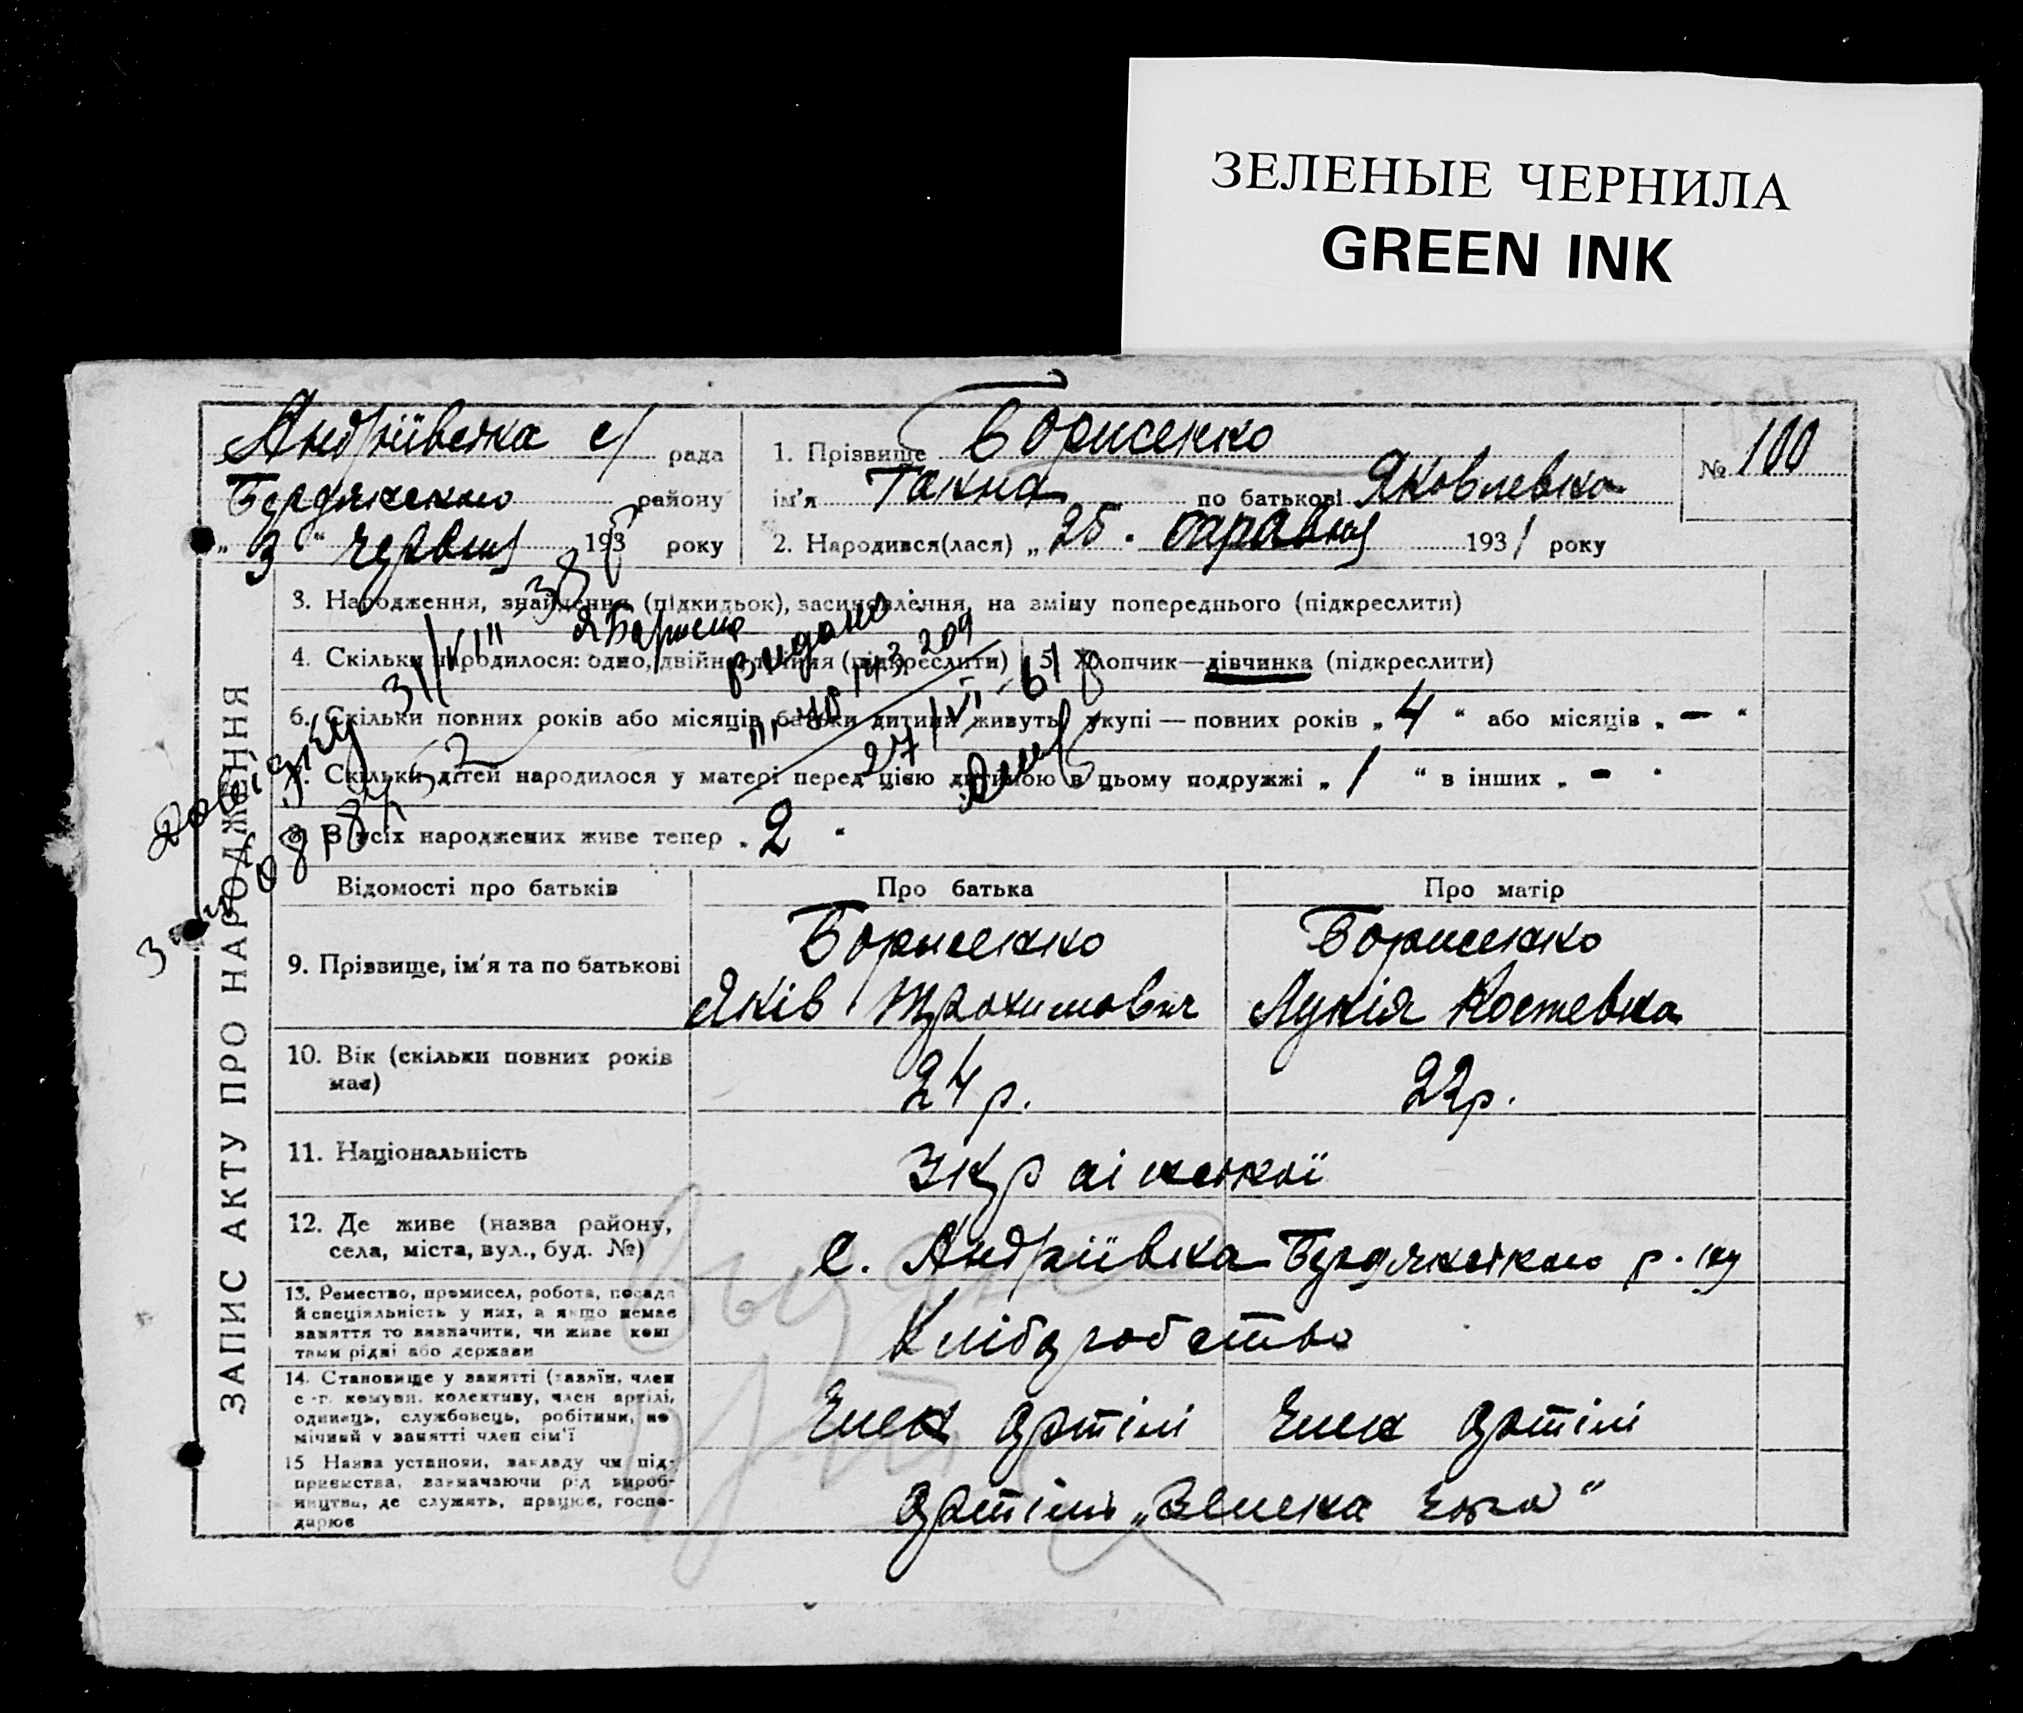 ЗЕЛЕНЫЕ ЧЕРНИЛА
GREEN INK
Андріївська с/ рада
Бердянського району
„3“ червня 193 року
1. Прізвище Борисенко
ім'я Ганна по батькові Яковлевна
2. Народився(лася) „25. травня 1931 року
№ 100
3. Народження, знайдення (підкидьок), засиновлення, на зміну попереднього (підкреслити)
4. Скільки народилося: одно, двійня, трійня (підкреслити)
5. Хлопчик—дівчинка (підкреслити)
6. Скільки повних років або місяців батьки дитини живуть укупі — повних років „4“ або місяців „–“
7. Скільки дітей народилося у матері перед цією дитиною в цьому подружжі „1“ в інших „–“
8. З усіх народжених живе тепер „2“
Видано
27/VI-61
ЗАПИС АКТУ ПРО НАРОДЖЕННЯ
Відомості про батьків Про батька Про матір
9. Прізвище, ім'я та по батькові
Борисенко
Яків Трохимович
Борисенко
Лукія Костевна
10. Вік (скільки повних років має)
24 р.
22 р.
11. Національність
Української
12. Де живе (назва району,
села, міста, вул., буд. №)
с. Андріївка Бердянського р-ну
13. Ремество, промисел, робота, посада
й спеціяльність у них, а якщо немае
заняття то визначити, чи живе кош
тами рідні або держави
Хліборобство
14. Становище у занятті (хазяїн, член
с.-г. комуни, колективу, член артілі,
одинець, службовець, робітник, по
мічний у занятті член сім'ї
Член артілі Член артілі
15 Назва установи, закладу чи під-
приємства, зазначаючи рід вироб-
ництва, де служить, працює, госпо-
дарює
Артіль